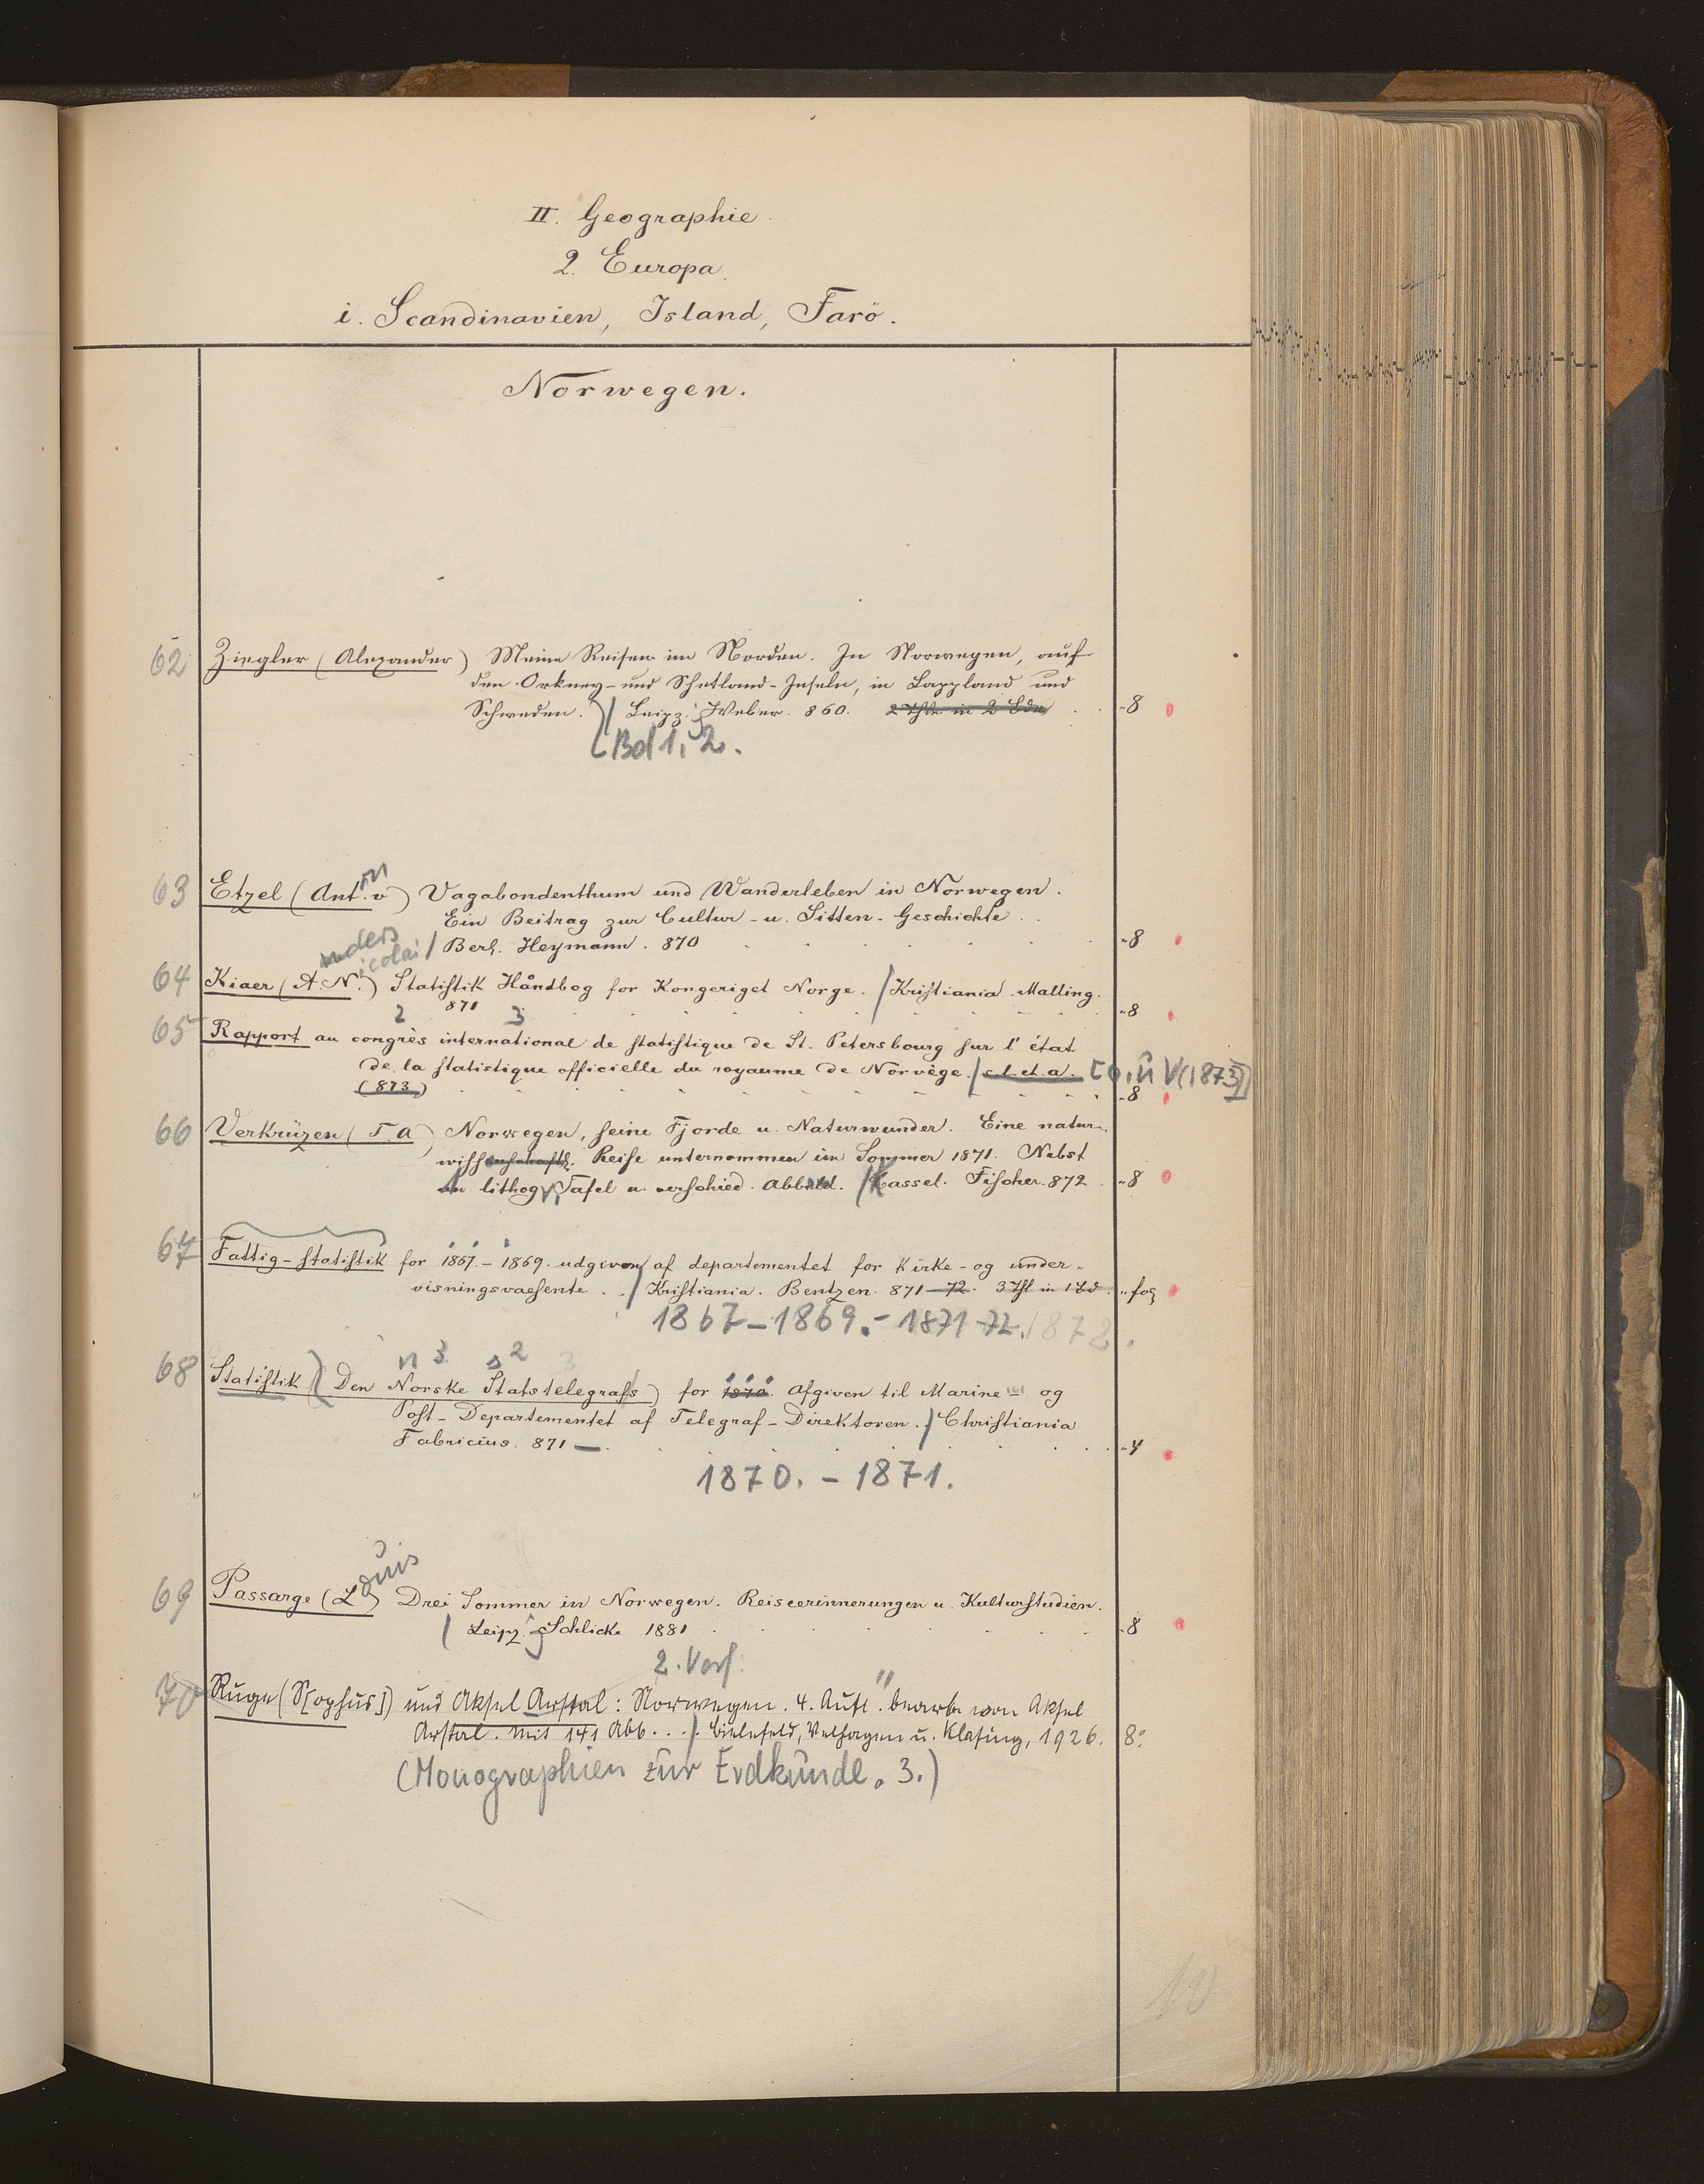 II. Geographie.
2. Europa.
i. Scandinavien, Island, Farö.
Norwegen.
62 Ziegler (Alexander) Meine Reisen im Norden. In Norwegen, auf
den Orkney- und Shetland-Inseln, in Lappland und
Schweden. / Leipz. Weber. 860. 2 Thle in 2 Bdn . . -8
(Bd 1, 2.
63 Etzel (Anton v) Vagabondenthum und Wanderleben in Norwegen.
Ein Beitrag zur Cultur- u. Sitten-Geschichte . .
/ Berl. Heymann. 870 -8
nders
icolai
64 Kiaer (A. N.) Statistik Håndbog for Kongeriget Norge. / Kristiania. Malling.
871 -8
2 3
65 Rapport au congrès international de statistique de St. Petersbourg sur l'état
de la statistique officielle du royaume de Norvège. / s. l. et. a. [o. O. u V (1873)]
(873) -8
66 Verkrüzen (T. A) Norwegen, seine Fjorde u. Naturwunder. Eine natur-
wissenschaftl. Reise unternommen im Sommer 1871. Nebst
an lithog. Tafel u. verschied. Abbild. / Cassel. Fischer. 872 . -8
67 Fattig-statistik for 1867.-1869. udgiven af departementet for Kirke- og under-
visningsvaesente . . / Kristiania. Bentzen. 871-72. 3 Thl in 1 Bd. -fol
1867-1869.- 1871-72. 1872.
n 3 s 2 3
68 Statistik (Den Norske Statstelegrafs) for 1870. Afgiven til Marine- og
Post-Departementet af Telegraf-Direktoren. / Christiania
Fabricius. 871 - -4
1870. - 1871.
69 Passarge (Louis) Drei Sommer in Norwegen. Reiseerinnerungen u. Kulturstudien.
/ Leipz. Schlicke 1881 -8
2. Verf.
70 Ruge (S[ophus]) und Aksel Arstal: Norwegen. 4. Aufl. bearb. von Aksel
Arstal. Mit 141 Abb. . . / Bielefeld, Velhagen u. Klasing, 1926. 8°
(Monographien zur Erdkunde. 3.)
10